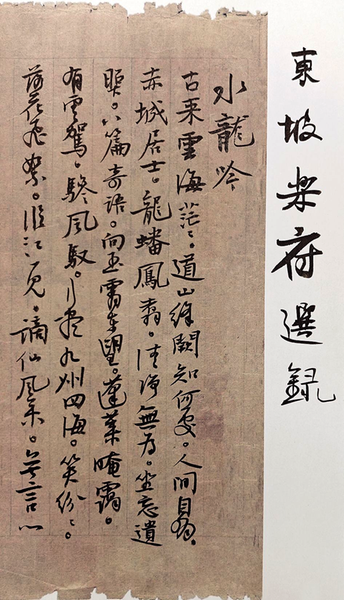 東坡樂府選録
水龍吟
古来雲海茫〻。道山絳闕知何處。人間自有。
赤城居士。龍蟠鳳翥。清淨無為。坐忘遺
照。八篇奇語。向玉霄東望。蓬萊晻靄。
有雲駕。驂風馭。行盡九州四海。笑紛〻。
落花飛絮。臨江一見。謫仙風采。無言心